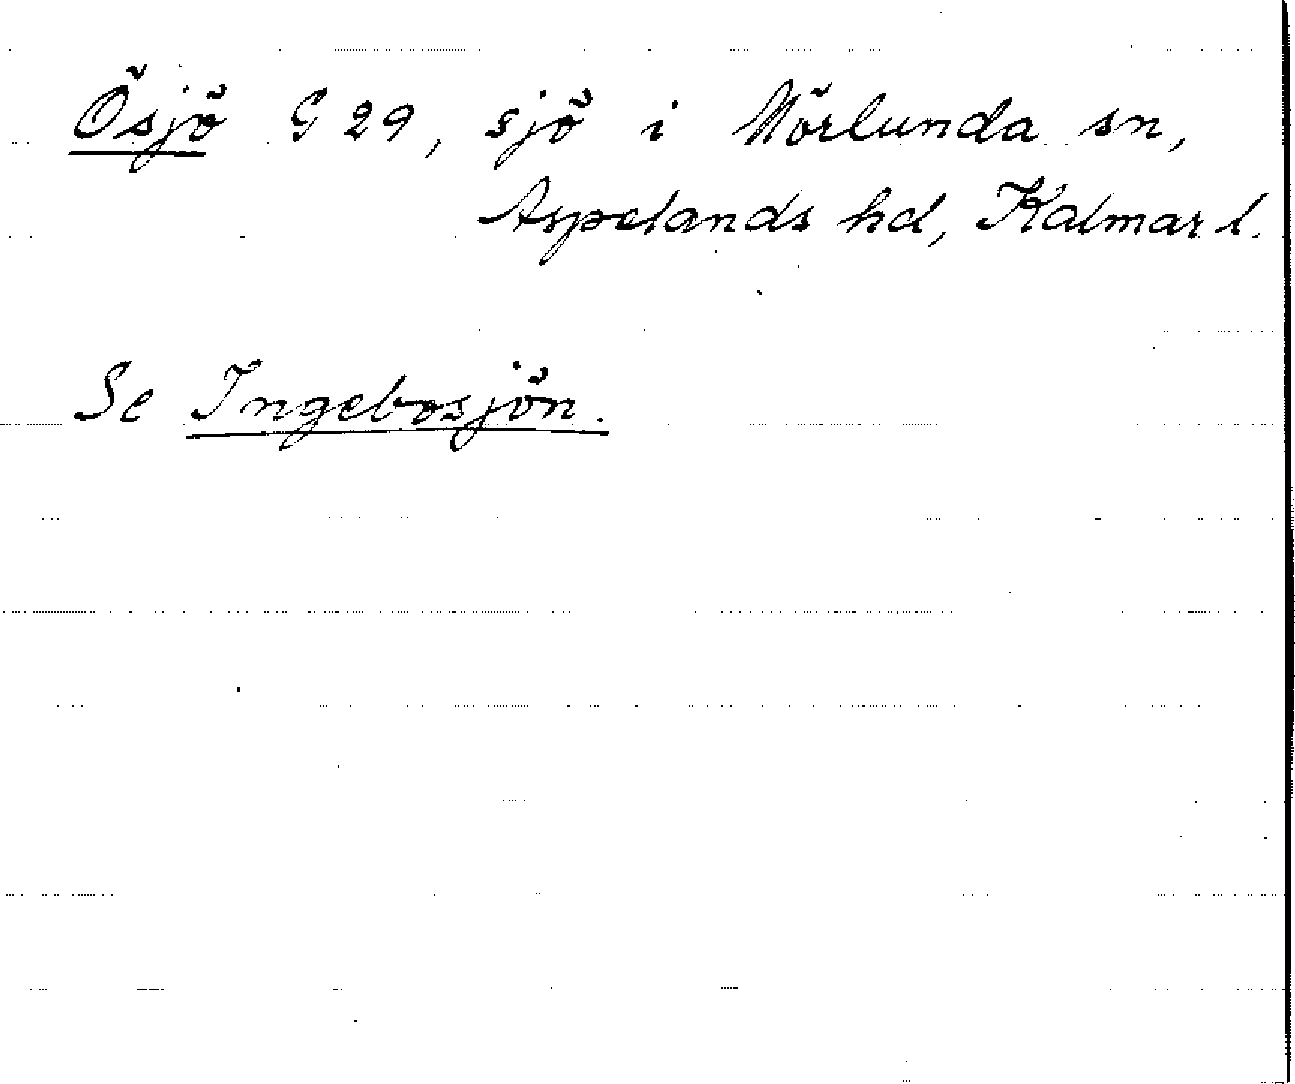 Ösjö G 29, sjö i Mörlunda sn,
Aspelands hd, Kalmar l.
Se Ingebosjön.